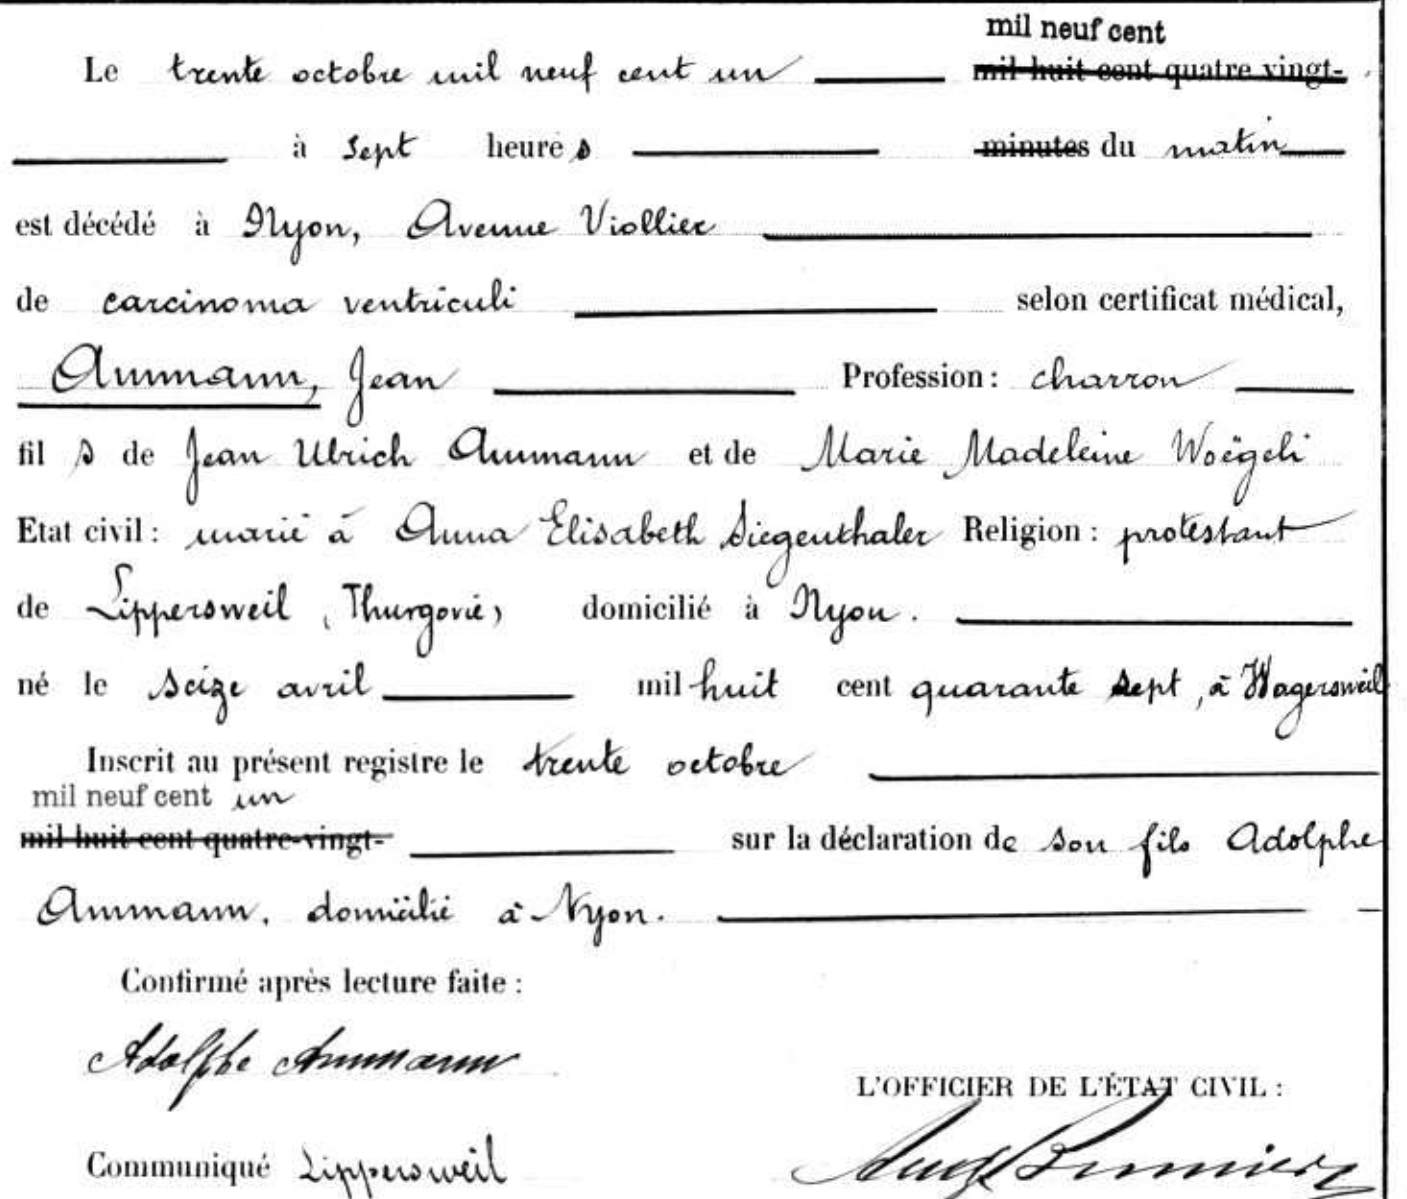 mil neuf cent
Le trente octobre mil neuf cent un mil huit cent quatre vingt-
à sept heures minutes du matin
est décédé à Nyon, Avenue Viollier
de carcinoma ventriculi selon certificat médical,
Ammann, Jean Profession : charron
fils de Jean Ulrich Ammann et de Marie Madeleine Woëgeli
Etat civil : marié à Anna Elisabeth Siegenthaler Religion : protestant
de Lippersweil, Thurgovie, domicilié à Nyon.
né le seize avril mil huit cent quarante sept, à Wagersweil
Inscrit au présent registre le trente octobre
mil neuf cent un
mil huit cent quatre-vingt- sur la déclaration de son fils Adolphe
Ammann, domicilié à Nyon.
Confirmé après lecture faite :
Adolphe Ammann
L'OFFICIER DE L'ÉTAT CIVIL :
Communiqué Lippersweil